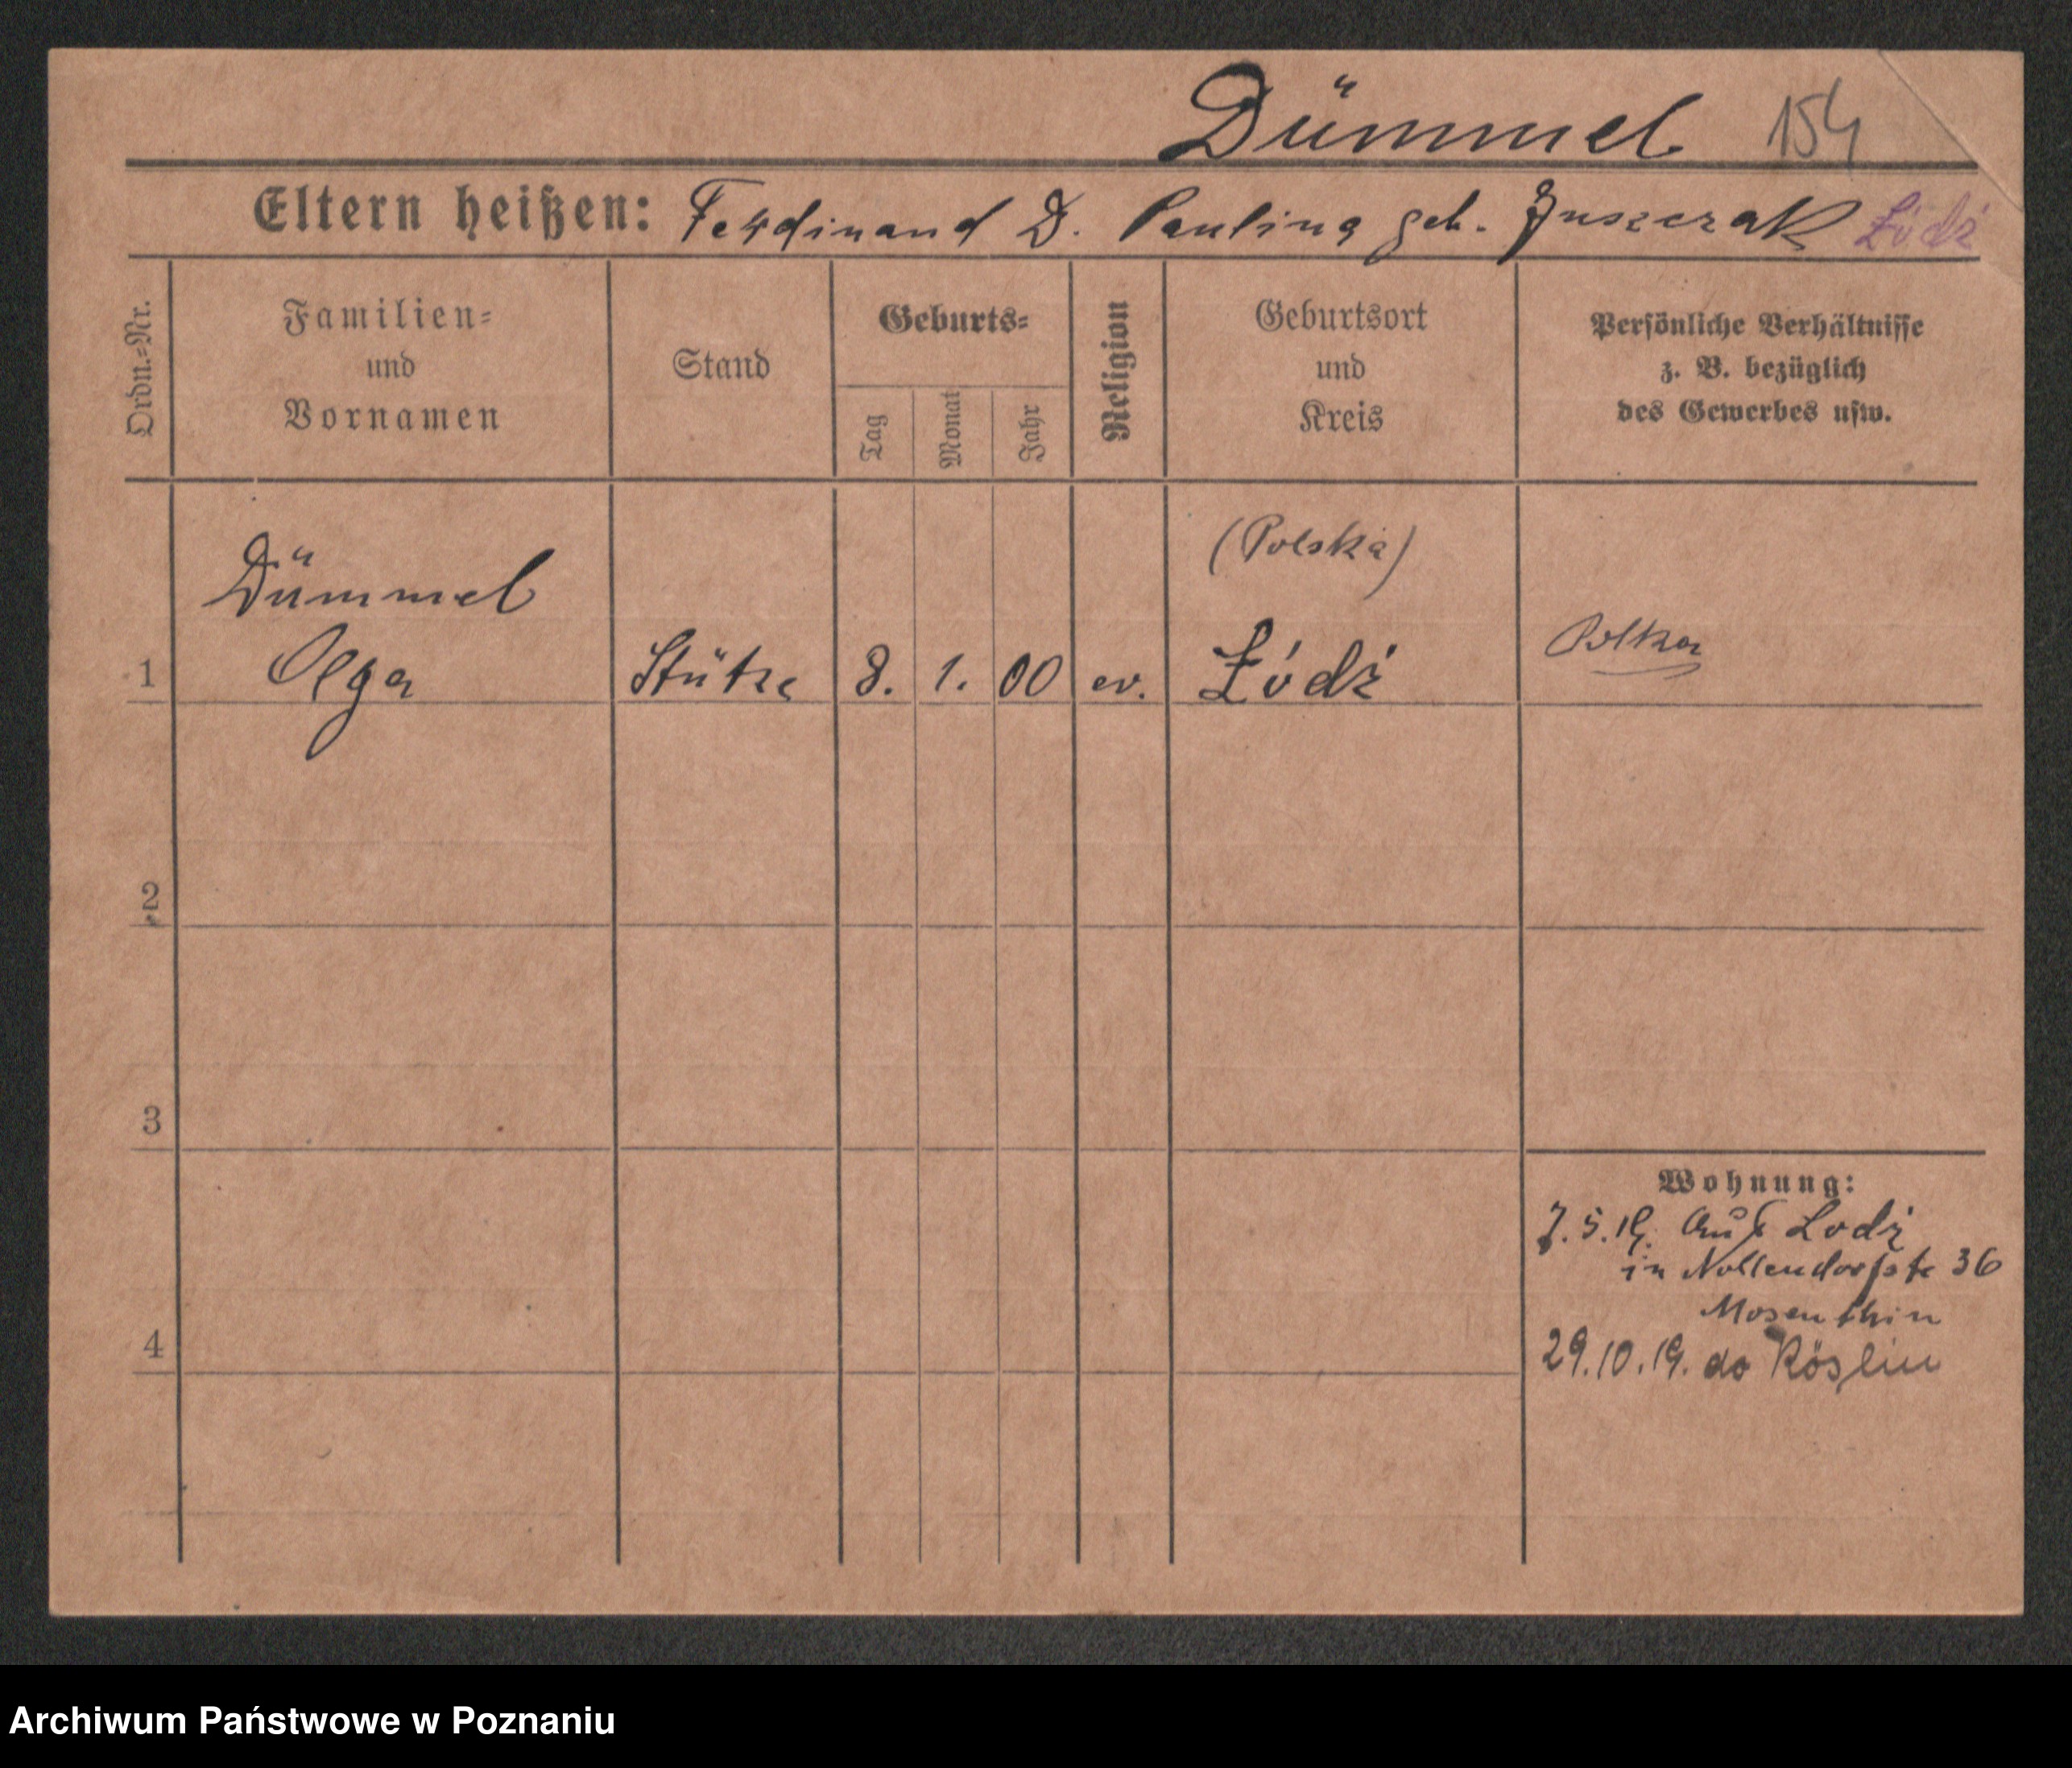 Dümmel 154
Eltern heißen: Ferdinand D. Paulina geb. Juszczak Łódź
Ordn.-Nr.
Familien-
und
Vornamen
Stand
Geburts-
Tag
Monat
Jahr
Religion
Geburtsort
und
Kreis
Persönliche Verhältnisse
z. B. bezüglich
des Gewerbes usw.
(Polska)
Dümmel
1 Olga Stütze 8. 1. 00 ev. Łódź Polka
2
3
4
Wohnung:
7.5.19. aus Lodz
in Nollendorfstr 36
Mosenthin
29.10.19. do Köslin
Archiwum Państwowe w Poznaniu